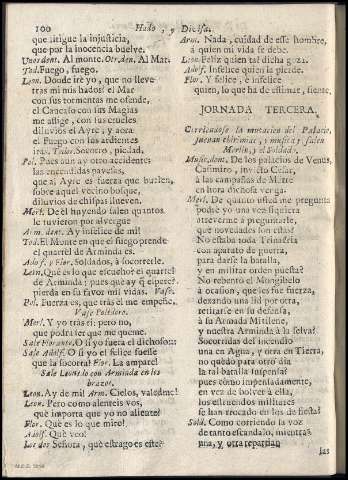 100 Hado, y Divisa,
que litigue la injusticia,
que por la inocencia buelve.
Unos dent. Al monte. Otr. den. Al Mar.
Tod. Fuego, fuego.
Leon. Donde irè yo, que no lleve
tras mi mis hados? el Mar
con sus tormentas me ofende,
el Caucaso con sus Magias
me assige, con sus crueles
diluvios el Ayre, y aora
el Fuego con sus ardientes
iras. Todos. Socorro, piedad.
Pol. Pues aun ay otro accidente:
las encendidas pavesas,
que al Ayre es fuerça que buelen,
sobre aquel vecino bosque,
diluvios de chispas llueven.
Merl. De èl huyendo salen quantos
le tuvieron por alvergue
Arm. dent. Ay infelice de mi!
Tod. El Monte en que el fuego prende
el quartel de Arminda es.
Adolf. y Flor. Soldados, à socorrerle.
Leon. Què es lo que escucho? el quartel
de Arminda? pues què ay que espere?
pierda en su favor mil vidas. Vase.
Pol. Fuerza es, que tràs èl me empeñe.
Vase Polidoro.
Merl. Y yo tràs ti; pero no,
que podrà ser que me queme.
Sale Florante. O si yo fuera el dichoso:
Sale Adolf. O si yo el felice fuesse
que la socorra! Flor. La ampare!
Sale Leonelo con Arminda en los
brazos.
Leon. Ay de mi! Arm. Cielos, valedme!
Leon. Pero como alenteis vos,
què importa que yo no aliente?
Flor. Què es lo que miro?
Adolf. Què veo!
Los dos Señora, què estrago es este?
Arm. Nada, cuidad de esse hombre,
à quien mi vida se debe.
Leon. Feliz quien tal dicha goza.
Adolf. Infelice quien la pierde.
Flor. Y felice, è infelice
quien, lo que ha de estimar, siente.
JORNADA TERCERA.
Corriendose la mutacion del Palacio,
suenan chirimias, y musica, y salen
Merlin, y el Soldado.
Music. dent. De los palacios de Venus,
Casimiro, invicto Cesar,
à las campañas de Marte
en hora dichosa venga.
Merl. De quanto usted me pregunta
podrè yo una vez siquiera
atreverme à preguntarle,
què novedades son estas?
No estaba toda Trinacria
con aparato de guerra,
para darse la batalla,
y en militar orden puesta?
No rebentò el Mongibelo
à ocasion, que les fue fuerza,
dexando una lid por otra,
retirarse en su defensa,
à su Armada Mitilene,
y nuestra Arminda à la selva?
Socorridas del incendio
una en Agua, y otra en Tierra,
no quedò para otro dia
la tal batalla suspensa?
pues còmo impensadamente,
en vez de bolver à ella,
los estruendos militares
se han trocado en los de fiesta?
Sold. Como corriendo la voz
de tanto escandalo, mientras
una, y otra repartian
las